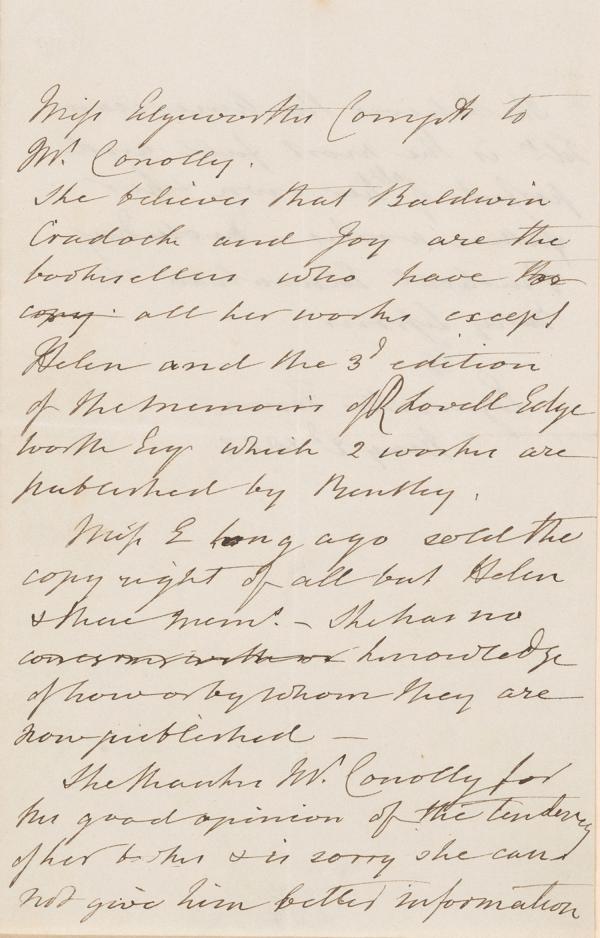 Miss Edgeworths Compts to
Mr. Conolly.
She believes that Baldwin
Cradock and Joy are the
booksellers who have the
copy all her works except
Helen and the 3d edition
of the memoirs of R Lovell Edge
worth Esq which 2 works are
published by Bentley.
Miss E long ago sold the
copy right of all but Helen
& these mems. – She has no
knowledge
of how or by whom they are
now published —
She thanks Mr. Conolly for
his good opinion of the tendency
of her books & is sorry she can
not give him better information